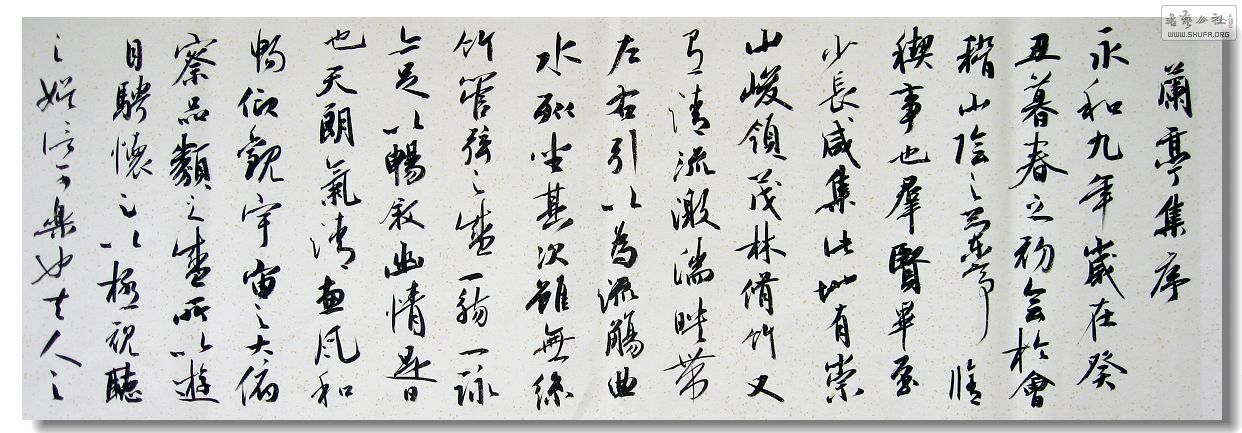 蘭亭集序
永和九年歲在癸
丑暮春之初會於會
稽山陰之蘭亭脩
禊事也羣賢畢至
少長咸集此地有崇
山峻領茂林脩竹又
有清流激湍映帶
左右引以為流觴曲
水列坐其次雖無絲
竹管弦之盛一觴一詠
亦足以暢敘幽情是日
也天朗氣清惠風和
暢仰觀宇宙之大俯
察品類之盛所以遊
目騁懷足以極視聽
之娛信可樂也夫人之
书艺公社
WWW.SHUFA.ORG